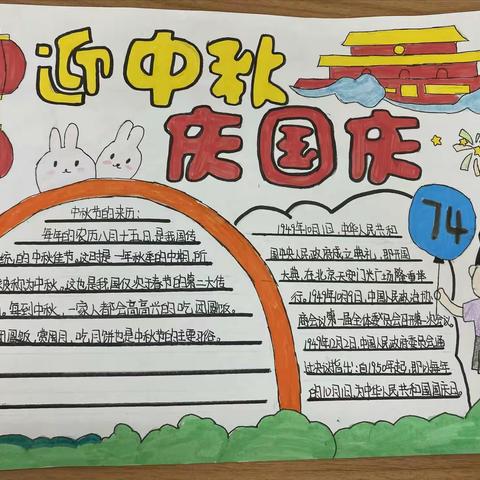 迎中秋
庆国庆
中秋节的来历：
每年的农历八月十五日，是我国传
统的中秋佳节。这时是一年秋季的中期，所
被称为中秋。这也是我国仅次于春节的第二大传
。每到中秋，一家人都会高高兴兴的吃团圆饭。
团圆饭，赏圆月，吃月饼也是中秋节的主要习俗。
1949年10月1日，中华人民共和
国中央人民政府成立典礼，即开国
大典，在北京天安门广场隆重举
行。1949年10月9日，中国人民政治协
商会议第一届全体委员会召开第一次会议。
1949年12月2日，中国人民政府委员会通
过决议指出：自1950年起，即以每年
的10月1日，为中华人民共和国国庆日。
74